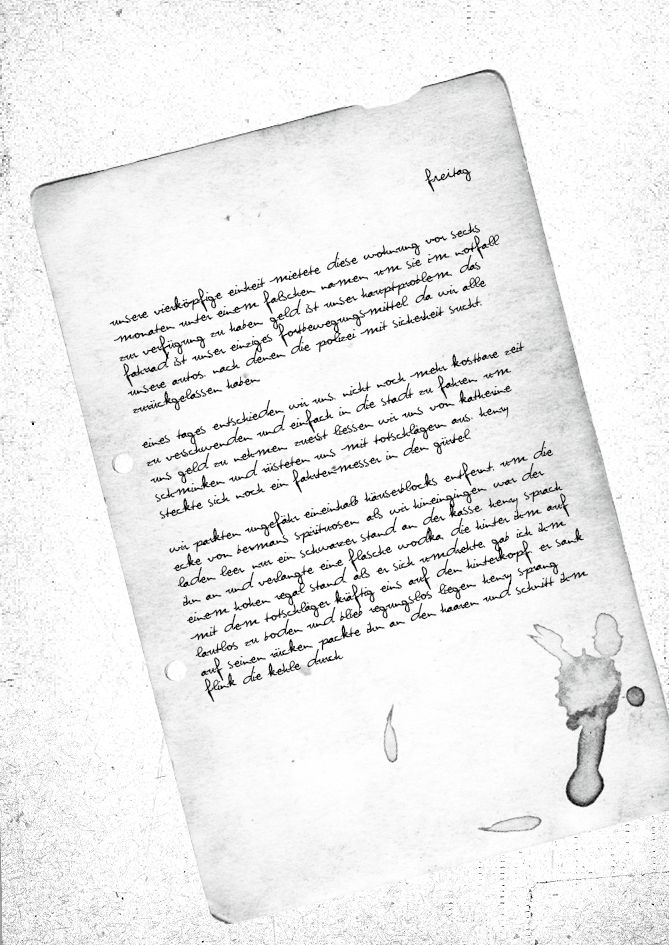 freitag
unsere vierköpfige einheit mietete diese wohnung vor sechs
monaten unter einem falschen namen um sie im notfall
zur verfügung zu haben geld ist unser hauptproblem das
fahrrad ist unser einziges fortbewegungsmittel da wir alle
unsere autos nach denen die polizei mit sicherheit sucht
zurückgelassen haben
eines tages entschieden wir uns nicht noch mehr kostbare zeit
zu verschwenden und einfach in die stadt zu fahren um
uns geld zu nehmen zuerst liessen wir uns von katherine
schminken und rüsteten uns mit totschlägern aus. henry
steckte sich noch ein fahrtenmesser in den gürtel
wir parkten ungefähr eineinhalb häuserblocks entfernt um die
ecke von bermans spirituosen als wir hineingingen war der
laden leer nur ein schwarzer stand an der kasse henry sprach
ihn an und verlangte eine flasche wodka die hinter ihm auf
einem hohen regal stand als er sich umdrehte gab ich ihm
mit dem totschläger kräftig eins auf den hinterkopf er sank
lautlos zu boden und blieb regungslos liegen henry sprang
auf seinen rücken packte ihn an den haaren und schnitt ihm
flink die kehle durch